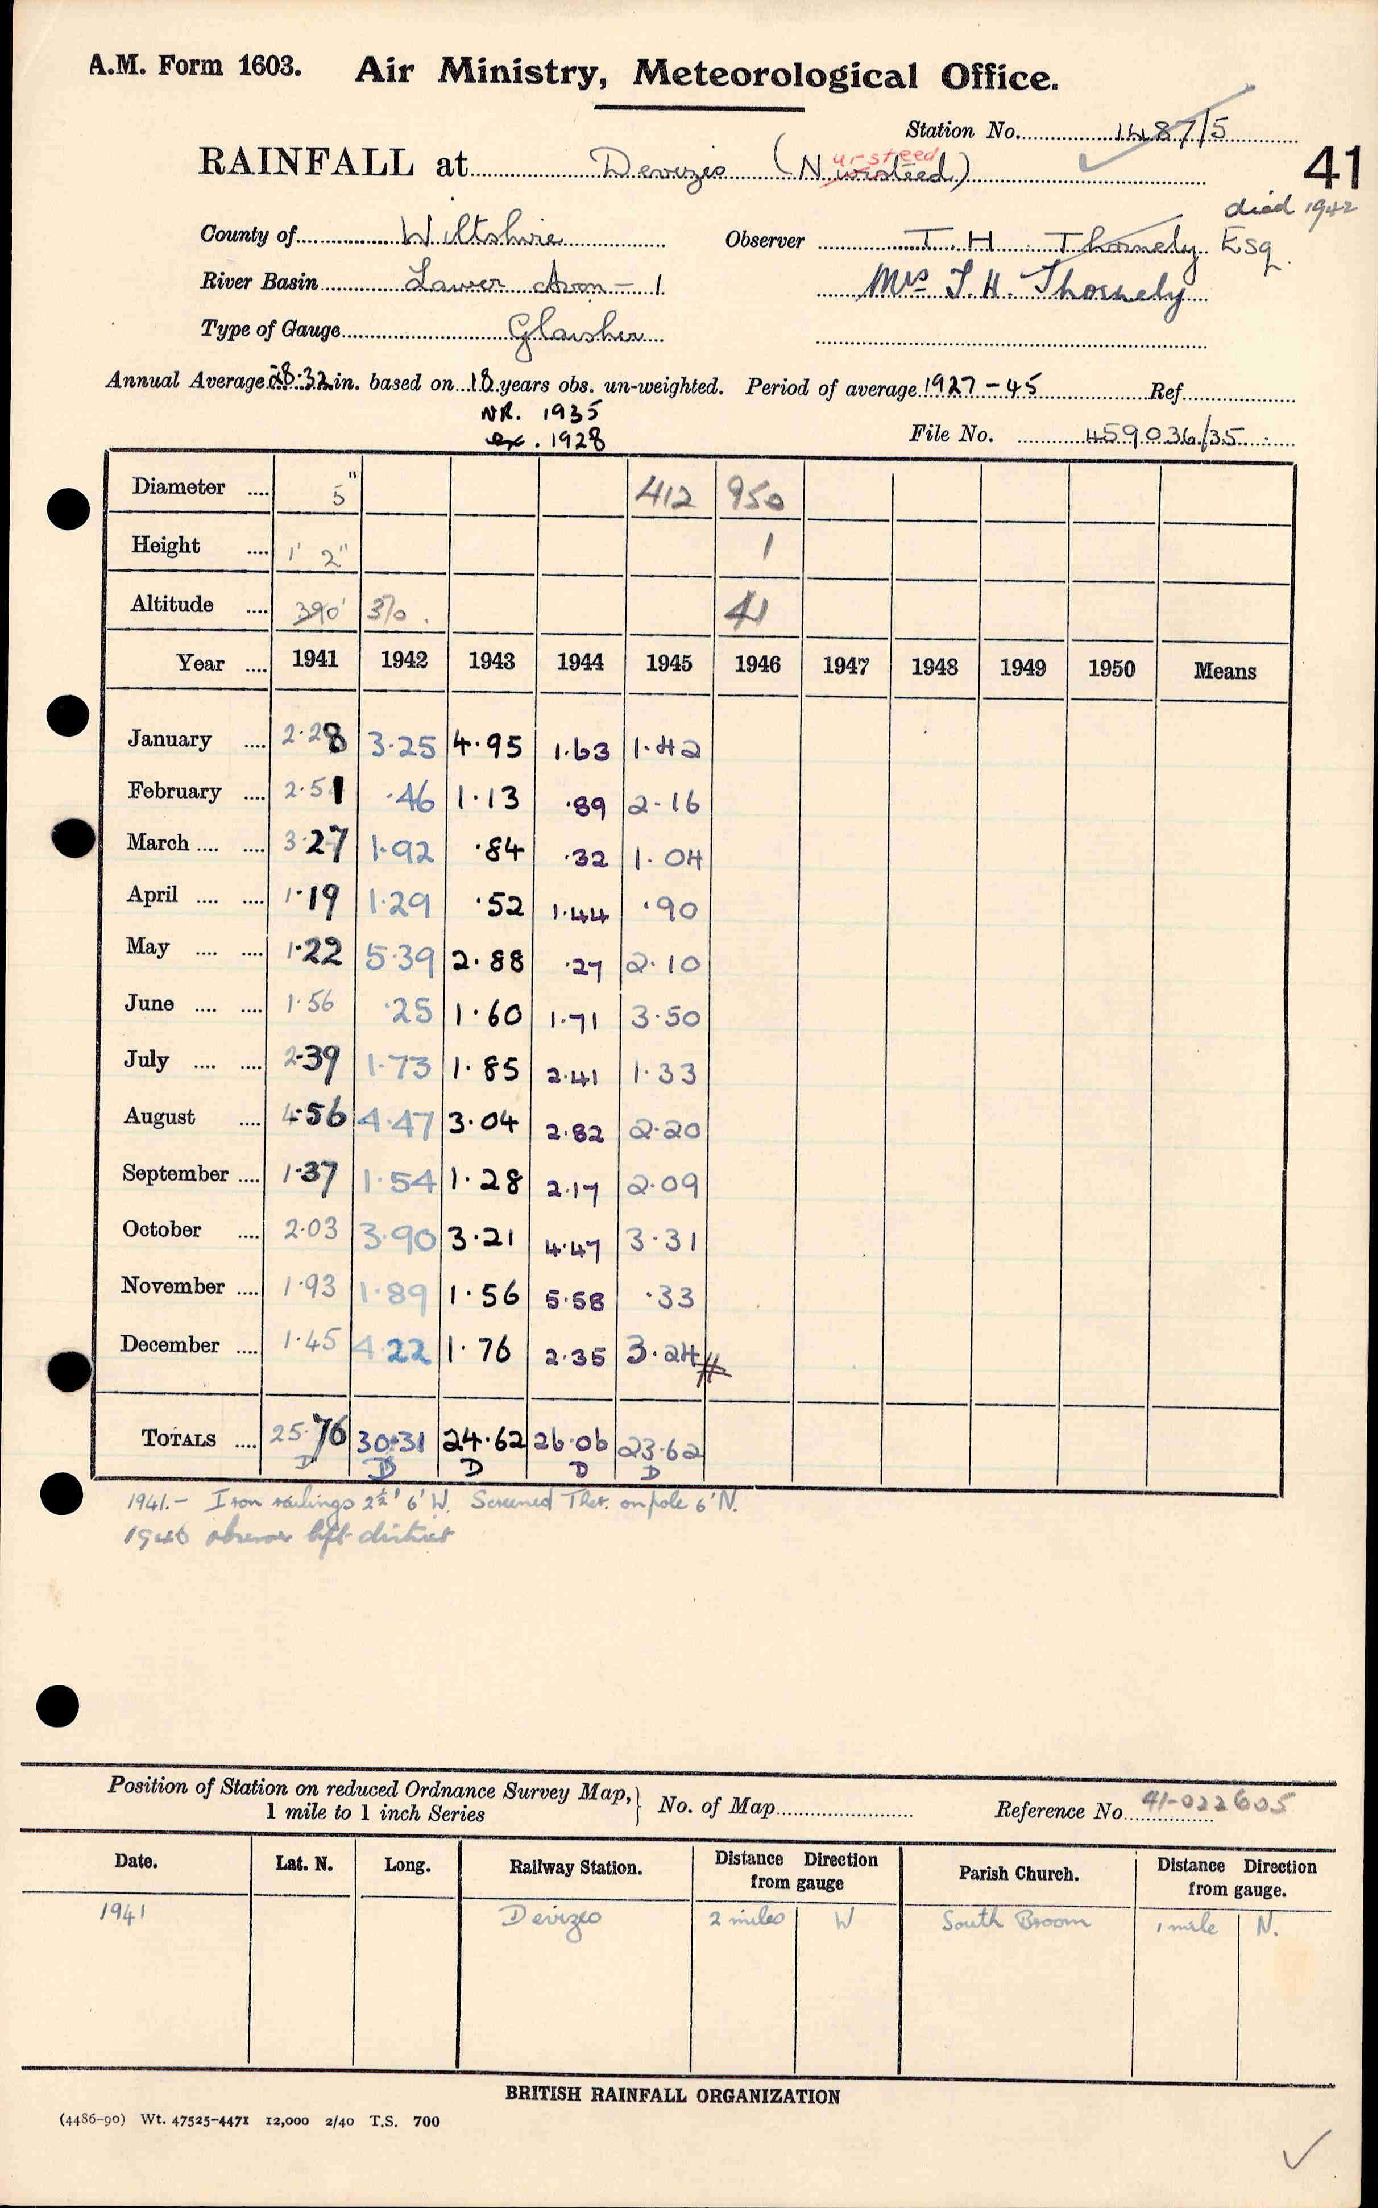 A.M. Form 1603. Air Ministry, Meteorological Office.
Station No. 1487/5
RAINFALL at Devizes (Nursteed)
41
died 1942
County of Wiltshire Observer T. H. Thornely Esq.
River Basin Lower Avon - 1 Mrs T. H. Thornely
Type of Gauge Glaisher
Annual Average 28.32 in. based on 18 years obs. un-weighted. Period of average 1927-45 Ref
NR. 1935
ex. 1928
File No. 459036/35
Diameter .... 5" 412 950
Height .... 1' 2" 1
Altitude .... 390' 370. 41
Year .... 1941 1942 1943 1944 1945 1946 1947 1948 1949 1950 Means
January .... 2.28 3.25 4.95 1.63 1.42
February .... 2.51 .46 1.13 .89 2.16
March .... .... 3.27 1.92 .84 .32 1.04
April .... .... 1.19 1.29 .52 1.44 .90
May .... .... 1.22 5.39 2.88 .27 2.10
June .... .... 1.56 .25 1.60 1.71 3.50
July .... .... 2.39 1.73 1.85 2.41 1.33
August .... 4.56 4.47 3.04 2.82 2.20
September .... 1.37 1.54 1.28 2.17 2.09
October .... 2.03 3.90 3.21 4.47 3.31
November .... 1.93 1.89 1.56 5.58 .33
December .... 1.45 4.22 1.76 2.35 3.24 #
TOTALS .... 25.76 30.31 24.62 26.06 23.62
D D D D D
1941.- Iron railings 2½' 6' W. Screened Ther. on pole 6' N.
1946 observer left district
Position of Station on reduced Ordnance Survey Map, } No. of Map Reference No. 41-022605
1 mile to 1 inch Series
Date. Lat. N. Long. Railway Station. Distance Direction from gauge Parish Church. Distance Direction from gauge.
1941 Devizes 2 miles W South Broom 1 mile N.
BRITISH RAINFALL ORGANIZATION
(4486-90) Wt. 47525-4471 12,000 2/40 T.S. 700